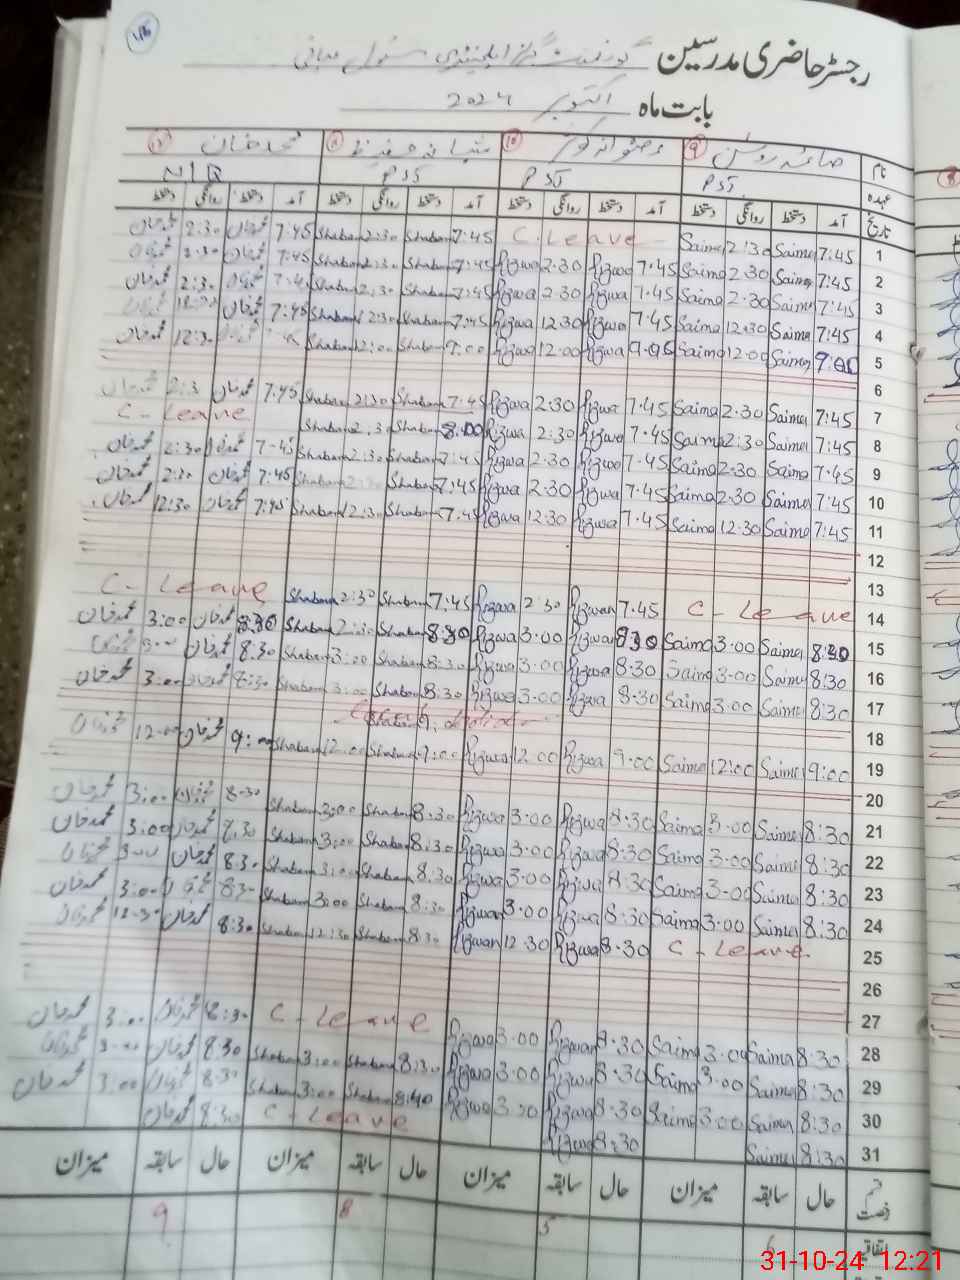 رجسٹر حاضری مدرسین گورنمنٹ گرلز ایلیمنٹری سکول
بابت ماہ اکتوبر 2024
نام صائمہ 9 رضوانہ کوثر 10 شبانہ حفیظ 11 محمد خان 12
عہدہ PST PST PST N/Q
تاریخ آمد دستخط روانگی دستخط آمد دستخط روانگی دستخط آمد دستخط روانگی دستخط آمد دستخط روانگی دستخط
1 7:45 Saima 2:30 Saima C. Leave 7:45 Shabana 2:30 Shabana 7:45 محمد خان 2:30 محمد خان
2 7:45 Saima 2:30 Saima 7.45 Rizwa 2.30 Rizwa 7:45 Shabana 2:30 Shabana 7:45 محمد خان 2:30 محمد خان
3 7:45 Saima 2.30 Saima 7.45 Rizwa 2.30 Rizwa 7:45 Shabana 2:30 Shabana محمد خان 2:30 محمد خان
4 7:45 Saima 12.30 Saima 7.45 Rizwa 12.30 Rizwa 7:45 Shabana 12:30 Shabana 7:45 محمد خان
5 9:00 Saima 12.00 Saima 9.00 Rizwa 12.00 Rizwa 9:00 Shabana 12:00 Shabana محمد خان 12:30 محمد خان
6
7 7:45 Saima 2.30 Saima 7.45 Rizwa 2.30 Rizwa 7:45 Shabana 2:30 Shabana 7:45 محمد خان 2:3 محمد خان
8 7:45 Saima 2:30 Saima 7.45 Rizwa 2:30 Rizwa 8:00 Shabana 2:30 Shabana C - Leave
9 7:45 Saima 2.30 Saima 7.45 Rizwa 2.30 Rizwa 7:45 Shabana 2:30 Shabana 7-45 محمد خان 2:30 محمد خان
10 7:45 Saima 2.30 Saima 7.45 Rizwa 2.30 Rizwa 7:45 Shabana Shabana 7:45 محمد خان 2:30 محمد خان
11 7:45 Saima 12.30 Saima 7.45 Rizwa 12.30 Rizwa 7:45 Shabana 12:30 Shabana 7:45 محمد خان 12:30 محمد خان
12
13
14 C - Leave 7.45 Rizwan 2.30 Rizwana 7:45 Shabana 2:30 Shabana C - Leave
15 8:30 Saima 3.00 Saima 8:30 Rizwan 3.00 Rizwa 8:30 Shabana 2:30 Shabana 8:30 محمد خان 3:00 محمد خان
16 8:30 Saima 3.00 Saima 8.30 Rizwa 3.00 Rizwa 8:30 Shabana 3:00 Shabana 8:30 محمد خان 3:00
17 8:30 Saima 3.00 Saima 8.30 Rizwa 3.00 Rizwa 8:30 Shabana 3:00 Shabana 8:30 محمد خان 3:00 محمد خان
18
19 9:00 Saima 12:00 Saima 9.00 Rizwa 12.00 Rizwa 9:00 Shabana 12:00 Shabana 9:00 محمد خان 12-00 محمد خان
20
21 8:30 Saima 3.00 Saima 8.30 Rizwa 3.00 Rizwa 8:30 Shabana 3:00 Shabana 8:30 محمد خان 3:00 محمد خان
22 8:30 Saima 3.00 Saima 8.30 Rizwa 3.00 Rizwa 8:30 Shabana 3:00 Shabana 8:30 محمد خان 3:00 محمد خان
23 8:30 Saima 3.00 Saima 8.30 Rizwa 3.00 Rizwa 8:30 Shabana 3:00 Shabana 8:30 محمد خان 3:00 محمد خان
24 8:30 Saima 3.00 Saima 8.30 Rizwa 3.00 Rizwan 8:30 Shabana 3:00 Shabana 8:30 محمد خان 3:00 محمد خان
25 C - Leave 8.30 Rizwa 12.30 Rizwan 8:30 Shabana 12:30 Shabana 8:30 محمد خان 12-30 محمد خان
26
27
28 8:30 Saima 3.00 Saima 8.30 Rizwan 3.00 Rizwa C - Leave 8:30 محمد خان 3:00 محمد خان
29 8:30 Saima 3.00 Saima 8.30 Rizwa 3.00 Rizwa 8:30 Shabana 3:00 Shabana 8:30 محمد خان 3:00 محمد خان
30 8:30 Saima 3.00 Saima 8.30 Rizwa 3.00 Rizwa 8:40 Shabana 3:00 Shabana 8:30 محمد خان 3:00 محمد خان
31 8:30 Saima 8.30 Rizwa C - Leave 8:30 محمد خان
قسم رخصت حال سابقہ میزان حال سابقہ میزان حال سابقہ میزان حال سابقہ میزان
اتفاقیہ 6 5 8 9
31-10-24 12:21